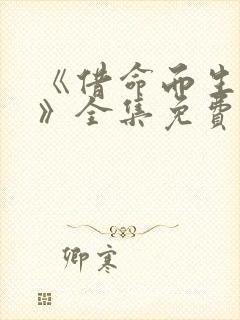 《借命而生
》全集免费
卿寒